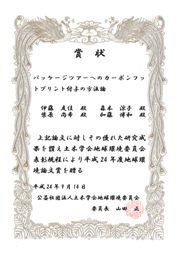 賞状
パッケージツアーへのカーボンフッ
トプリント付与の方法論
伊藤友佳殿 森本涼子殿
柴原尚希殿 加藤博和殿
上記論文に対しその優れた研究成
果を讃え土木学会地球環境委員会
表彰規程により平成24年度地球環
境論文賞を贈る
平成24年9月14日
公益社団法人土木学会地球環境委員会
委員長 山田正